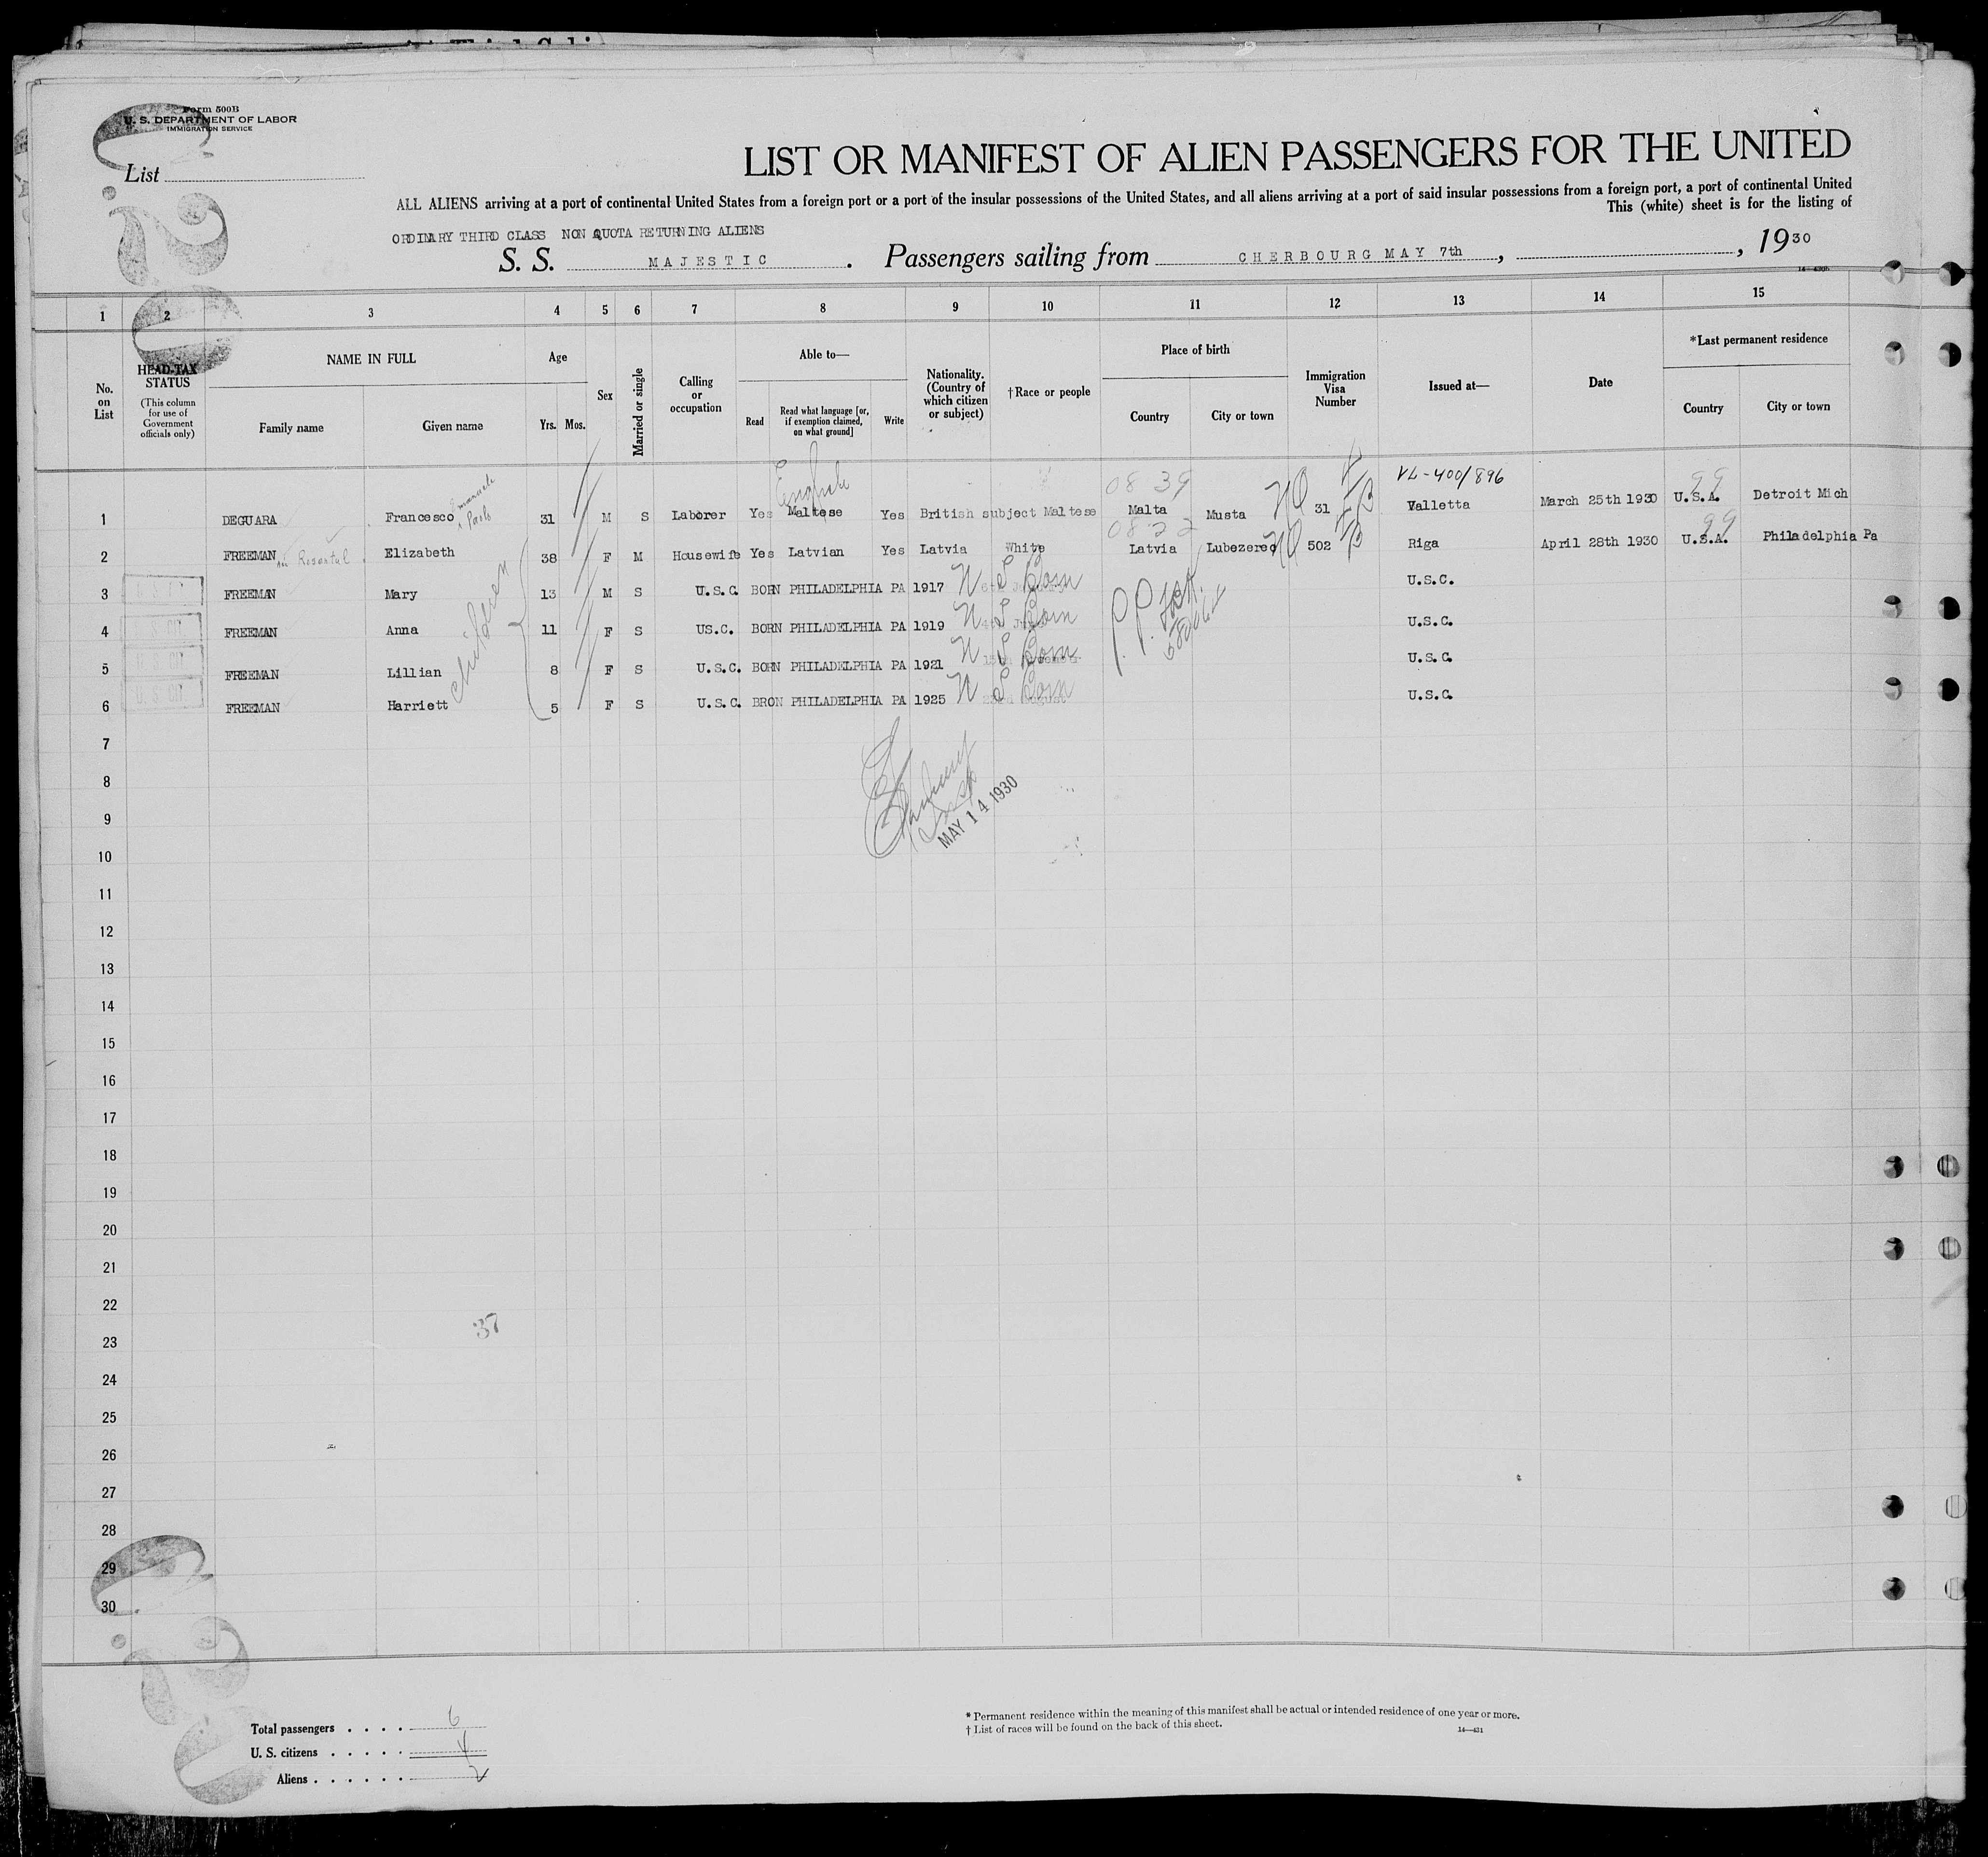 Form 500B
U. S. DEPARTMENT OF LABOR
IMMIGRATION SERVICE
List
LIST OR MANIFEST OF ALIEN PASSENGERS FOR THE UNITED
ALL ALIENS arriving at a port of continental United States from a foreign port or a port of the insular possessions of the United States, and all aliens arriving at a port of said insular possessions from a foreign port, a port of continental United
This (white) sheet is for the listing of
ORDINARY THIRD CLASS NON QUOTA RETURNING ALIENS
S. S. MAJESTIC. Passengers sailing from CHERBOURG MAY 7th, , 1930
1 2 3 4 5 6 7 8 9 10 11 12 13 14 15
No. on List
HEAD-TAX STATUS
(This column for use of Government officials only)
NAME IN FULL
Family name Given name
Age
Yrs. Mos.
Sex
Married or single
Calling or occupation
Able to—
Read
Read what language [or, if exemption claimed, on what ground]
Write
Nationality. (Country of which citizen or subject)
†Race or people
Place of birth
Country City or town
Immigration Visa Number
Issued at—
Date
*Last permanent residence
Country City or town
English 08 39 VL-400/896 99
1 DEGUARA Francesco Emanuele Paolo 31 M S Laborer Yes Maltese Yes British subject Maltese Malta Musta 31 Valletta March 25th 1930 U.S.A. Detroit Mich
08 22 99
2 FREEMAN Elizabeth 38 F M Housewife Yes Latvian Yes Latvia White Latvia Lubezere 502 Riga April 28th 1930 U.S.A. Philadelphia Pa
3 FREEMAN Mary 13 M S U.S.C. BORN PHILADELPHIA PA 1917 U S Born U.S.C.
4 FREEMAN Anna 11 F S US.C. BORN PHILADELPHIA PA 1919 U S Born U.S.C.
5 FREEMAN Lillian 8 F S U.S.C. BORN PHILADELPHIA PA 1921 U S Born U.S.C.
6 FREEMAN Harriett 5 F S U.S.C. BRON PHILADELPHIA PA 1925 U S Born U.S.C.
children
7
8
MAY 14 1930
9
10
11
12
13
14
15
16
17
18
19
20
21
22
37
23
24
25
26
27
28
29
30
Total passengers . . . . 6
U. S. citizens . . . . . 4
Aliens . . . . . . 2
* Permanent residence within the meaning of this manifest shall be actual or intended residence of one year or more.
† List of races will be found on the back of this sheet.
14—431